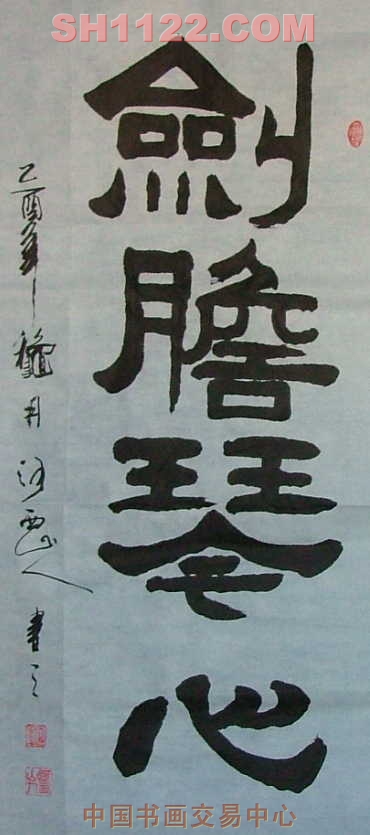 SH1122.COM
劍膽琴心
乙酉年
月
西山人
書
中国书画交易中心